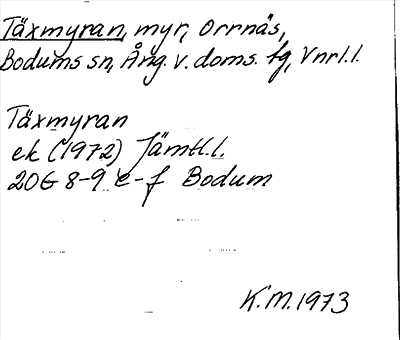 Täxmyran, myr, Orrnäs,
Bodums sn, Ång. v. doms. fg, Vnrl.l.
Täxmyran
ek (1972) Jämtl.l.
20G 8-9 e-f Bodum
K.M. 1973